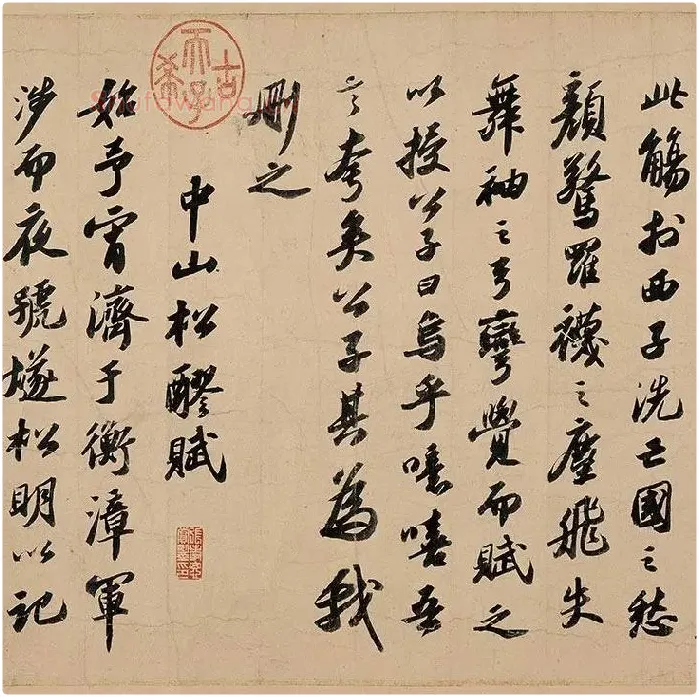 此觴於西子洗亡國之愁
顏驚羅襪之塵飛失
舞袖之弓彎覺而賦之
以授公子曰烏乎噫嘻吾
言夸矣公子其為我
刪之
中山松醪賦
始予宵濟于衡漳軍
涉而夜號燧松明以記
古希天子